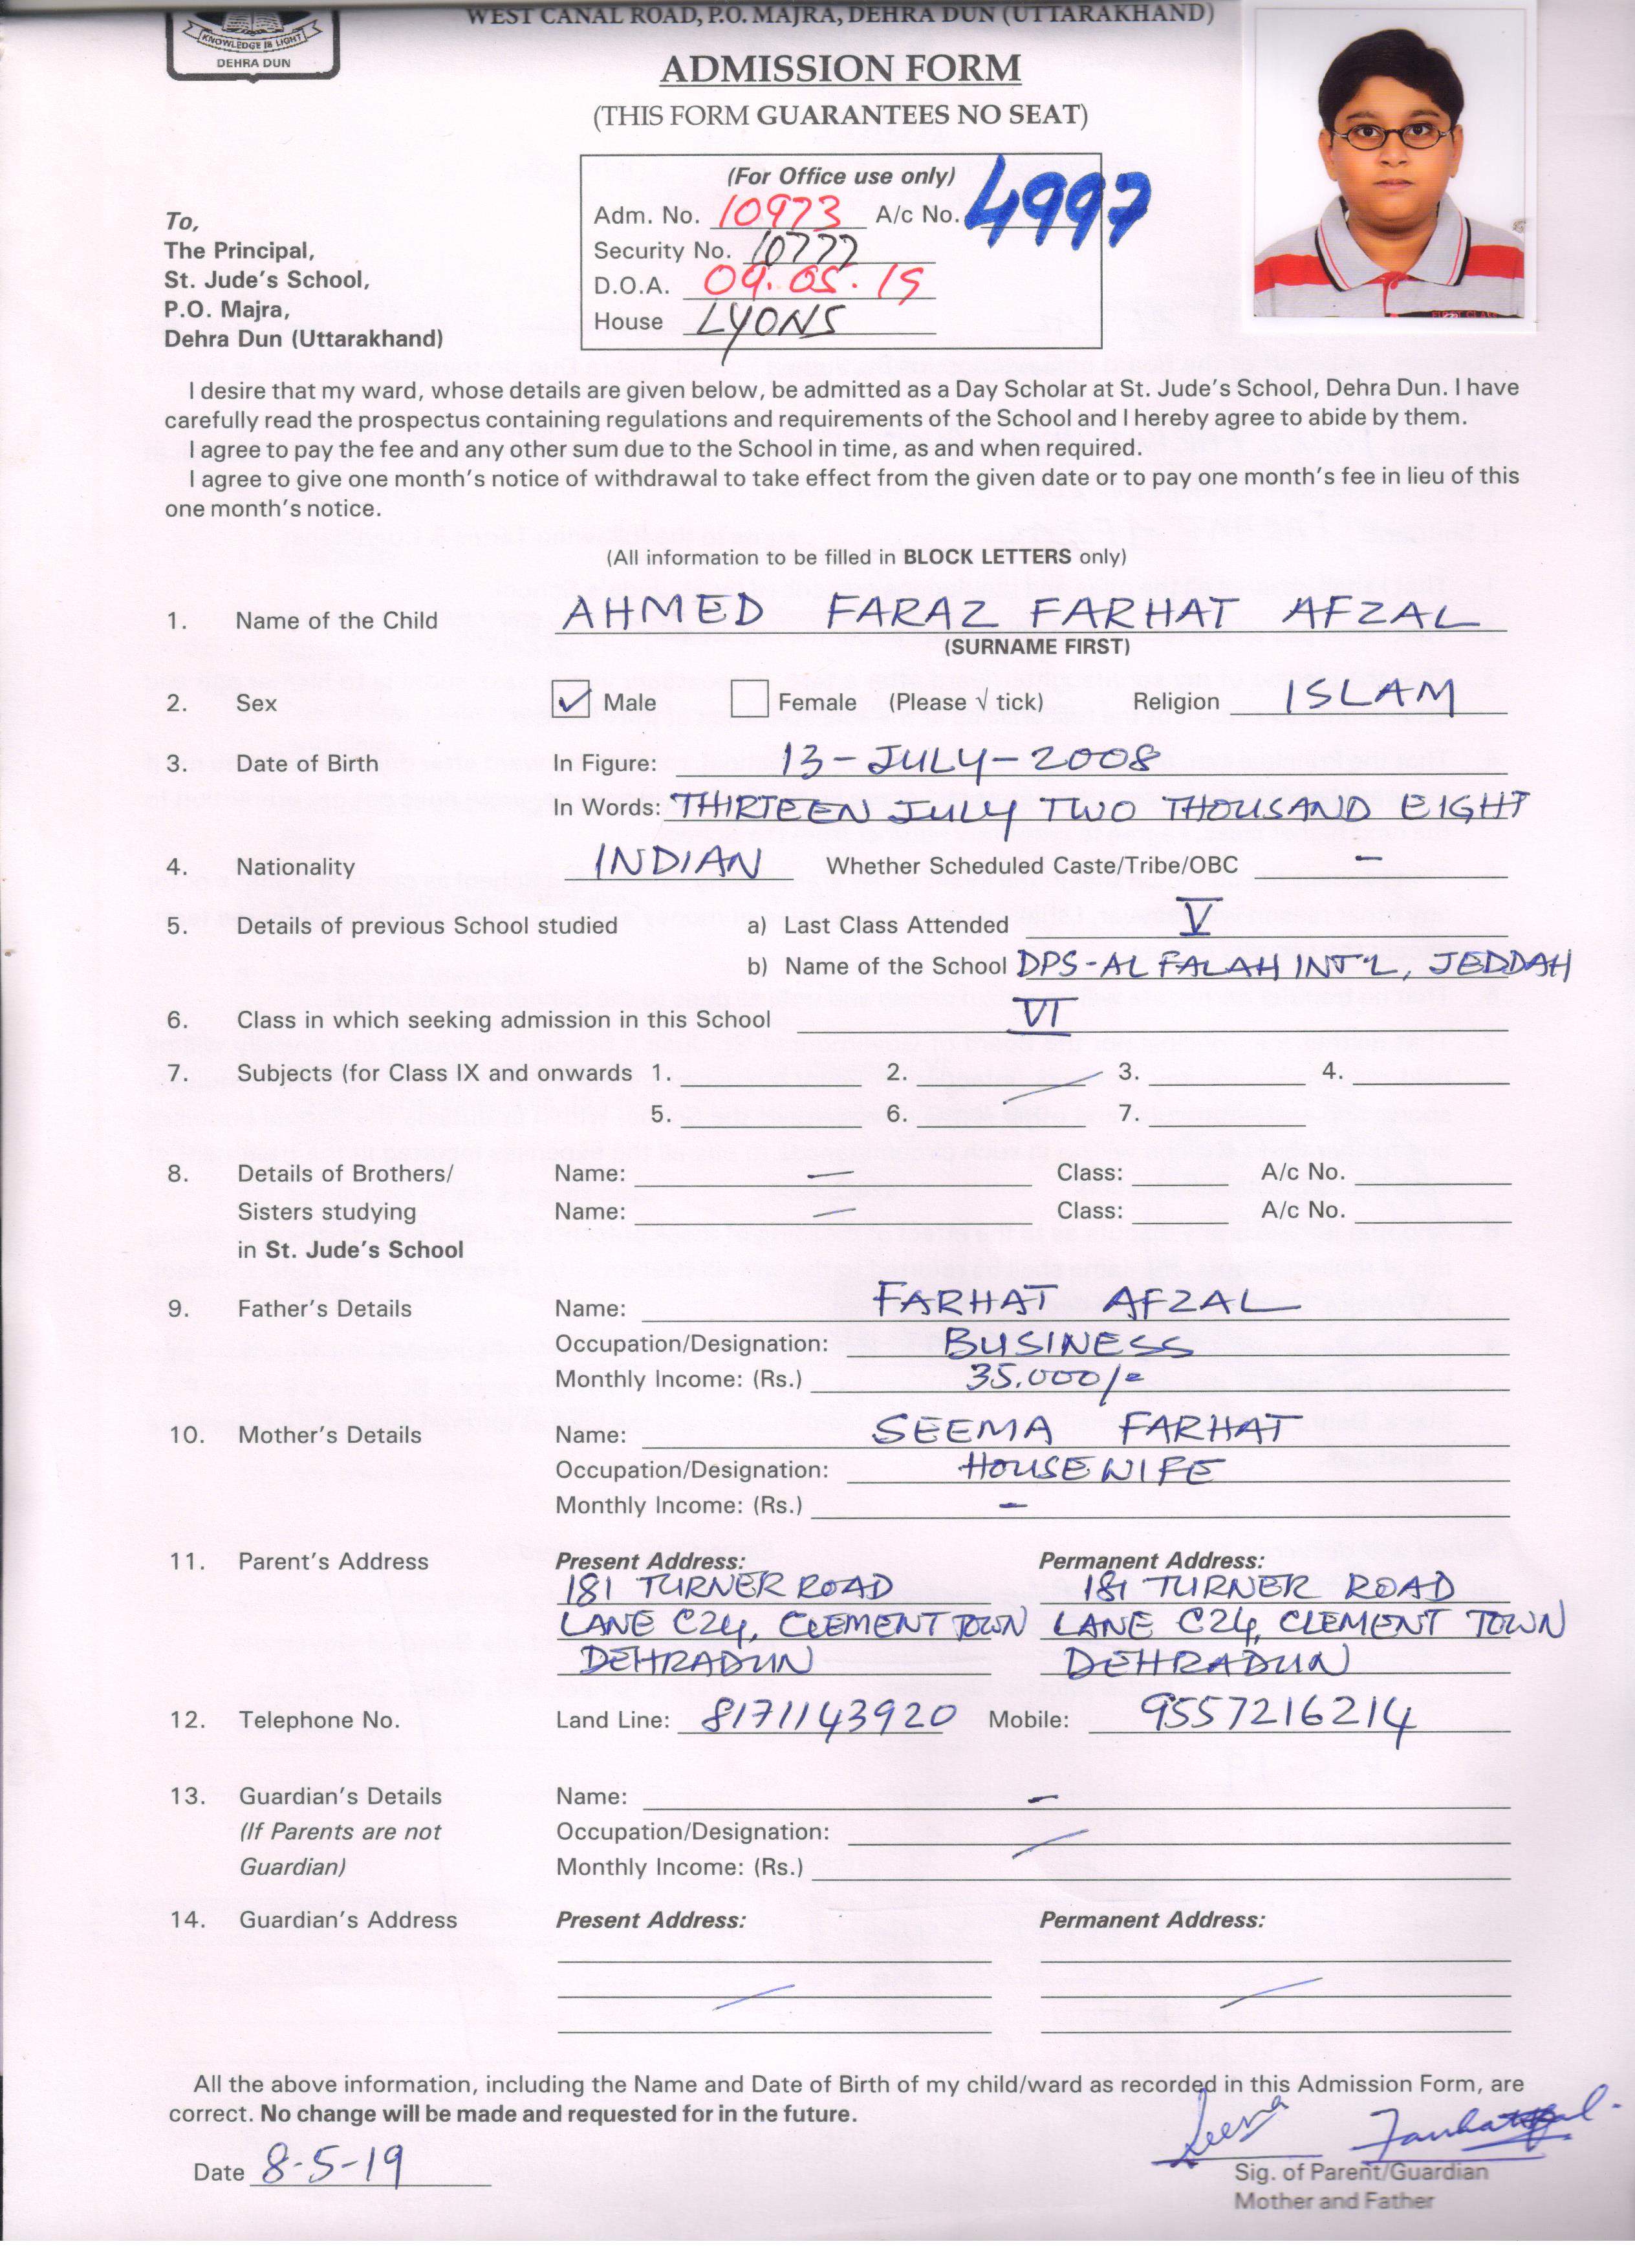 WEST CANAL ROAD, P.O. MAJRA, DEHRA DUN (UTTARAKHAND)
KNOWLEDGE IS LIGHT
DEHRA DUN
ADMISSION FORM
(THIS FORM GUARANTEES NO SEAT)
(For Office use only)
Adm. No. 10973 A/c No. 4997
Security No. 10777
D.O.A. 09.05.19
House LYONS
To,
The Principal,
St. Jude's School,
P.O. Majra,
Dehra Dun (Uttarakhand)
I desire that my ward, whose details are given below, be admitted as a Day Scholar at St. Jude's School, Dehra Dun. I have
carefully read the prospectus containing regulations and requirements of the School and I hereby agree to abide by them.
I agree to pay the fee and any other sum due to the School in time, as and when required.
I agree to give one month's notice of withdrawal to take effect from the given date or to pay one month's fee in lieu of this
one month's notice.
(All information to be filled in BLOCK LETTERS only)
1. Name of the Child AHMED FARAZ FARHAT AFZAL
(SURNAME FIRST)
2. Sex ✓ Male Female (Please √ tick) Religion ISLAM
3. Date of Birth In Figure: 13-JULY-2008
In Words: THIRTEEN JULY TWO THOUSAND EIGHT
4. Nationality INDIAN Whether Scheduled Caste/Tribe/OBC –
5. Details of previous School studied a) Last Class Attended V
b) Name of the School DPS-AL FALAH INT'L, JEDDAH
6. Class in which seeking admission in this School VI
7. Subjects (for Class IX and onwards 1. 2. 3. 4.
5. 6. 7.
8. Details of Brothers/ Name: – Class: A/c No.
Sisters studying Name: – Class: A/c No.
in St. Jude's School
9. Father's Details Name: FARHAT AFZAL
Occupation/Designation: BUSINESS
Monthly Income: (Rs.) 35,000/=
10. Mother's Details Name: SEEMA FARHAT
Occupation/Designation: HOUSEWIFE
Monthly Income: (Rs.) –
11. Parent's Address Present Address: Permanent Address:
181 TURNER ROAD 181 TURNER ROAD
LANE C24, CLEMENT TOWN LANE C24, CLEMENT TOWN
DEHRADUN DEHRADUN
12. Telephone No. Land Line: 8171143920 Mobile: 9557216214
13. Guardian's Details Name: –
(If Parents are not Occupation/Designation:
Guardian) Monthly Income: (Rs.)
14. Guardian's Address Present Address: Permanent Address:
All the above information, including the Name and Date of Birth of my child/ward as recorded in this Admission Form, are
correct. No change will be made and requested for in the future.
Seema Farhat Afzal
Date 8-5-19
Sig. of Parent/Guardian
Mother and Father